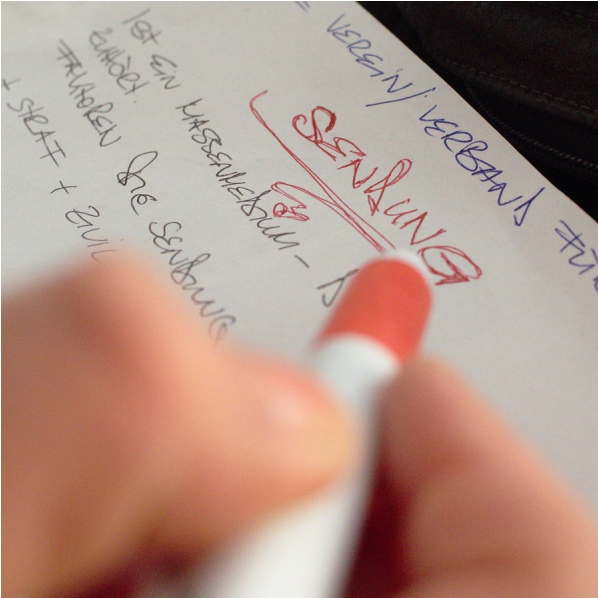 = VEREIN/VERBAND FÜR
SENDUNG
IST EIN MASSENMEDIUM –
ZUHÖRT.
FAKTOREN DIE SENDUNG
+ STRAF + ZIVIL